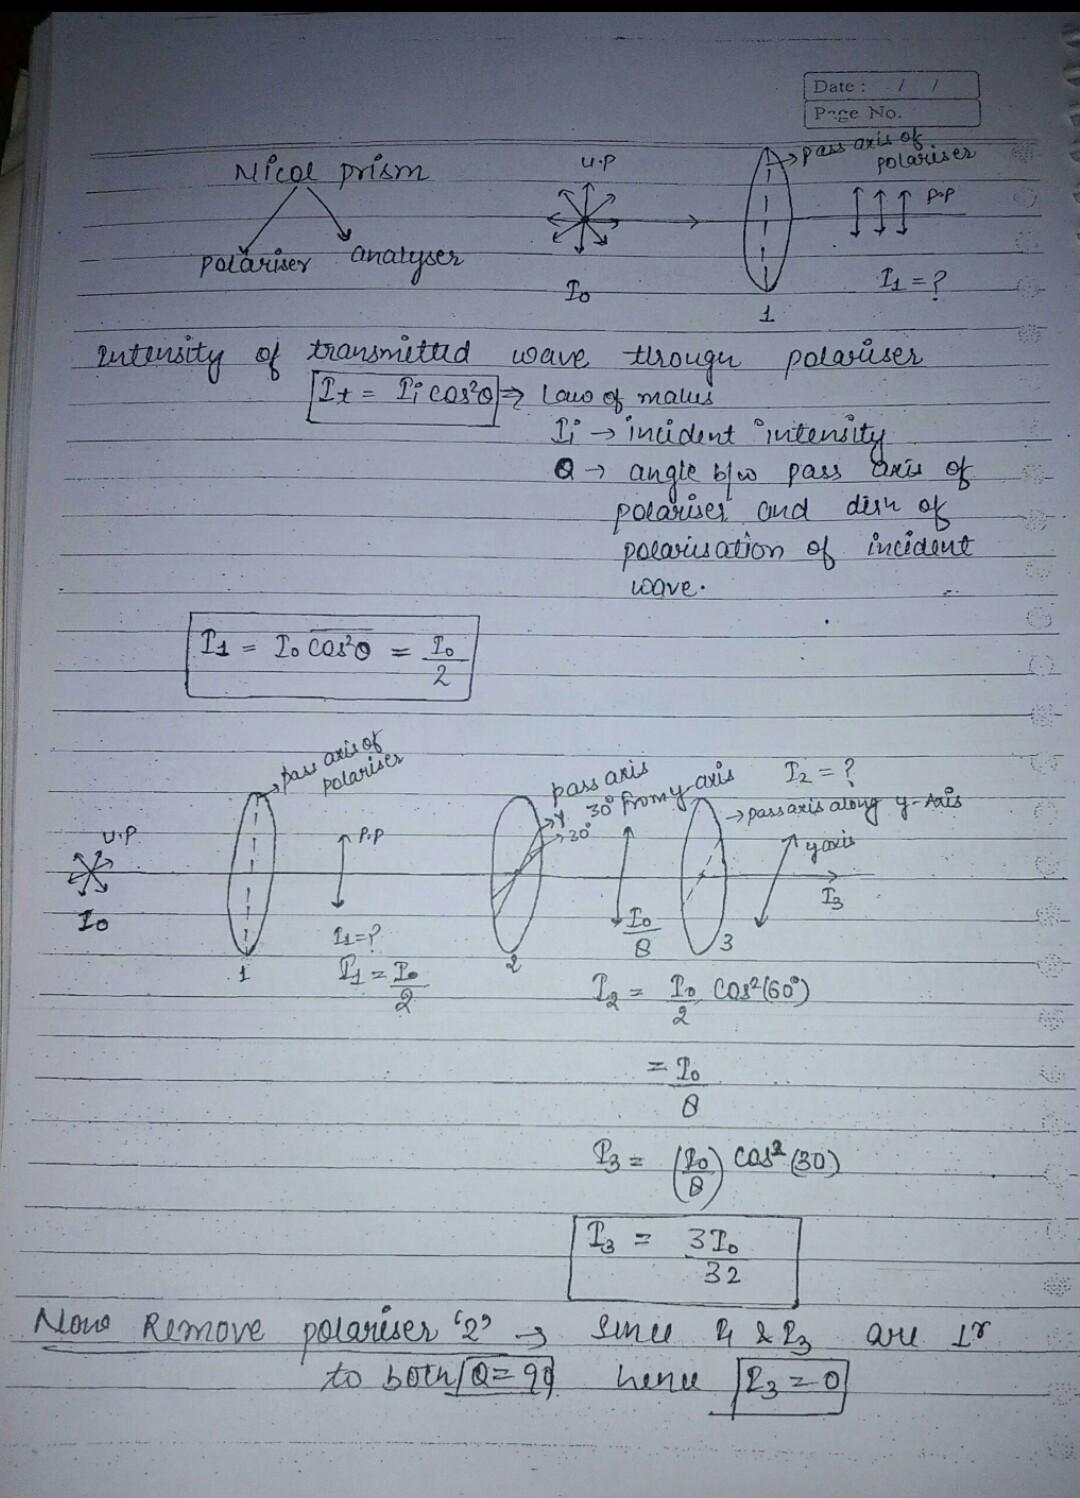 Date : / /
Page No.
Nicol prism
polariser analyser
U.P
I₀
pass axis of
polariser
P.P
I₁ = ?
1
Intensity of transmitted wave through polariser
It = Ii cos²θ ⇒ Law of malus
Ii → incident intensity
θ → angle b/w pass axis of
polariser and dirn of
polarisation of incident
wave.
I₁ = I₀ cos²θ = I₀/2
pass axis of
polariser
U.P
I₀
1
P.P
I₁ = ?
I₁ = I₀/2
pass axis
30° from y-axis
Y
30°
2
I₀/8
I₂ = ?
pass axis along y-Axis
y axis
I₃
3
I₂ = I₀/2 cos²(60°)
= I₀/8
I₃ = (I₀/8) cos²(30)
I₃ = 3I₀/32
Now Remove polariser '2' → since P₁ & P₃ are ⊥r
to both θ = 90 hence I₃ = 0